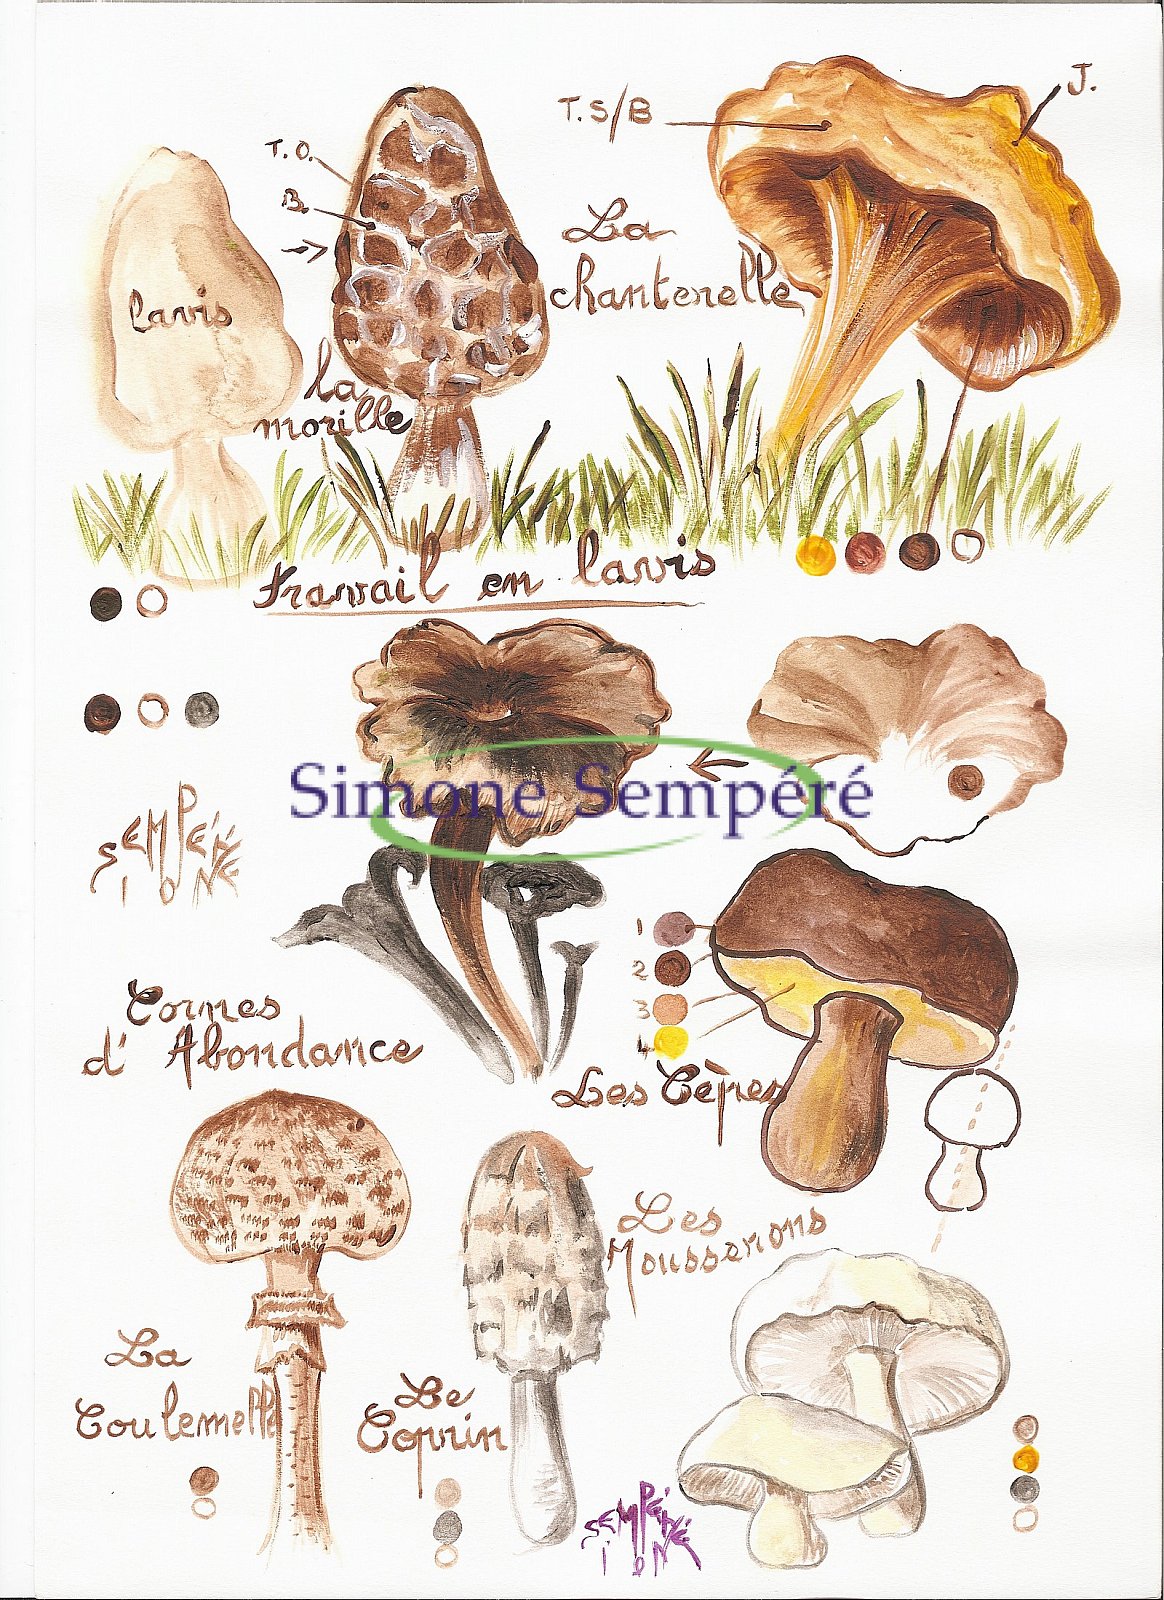 T.S/B
J.
T.O.
B.
La
chanterelle
lavis
la
morille
travail en lavis
Simone Sempéré
SEMPÉRÉ
SIONE
1
2
3
4
Cornes
d' Abondance
Les Cèpes
Les
Mousserons
La
Coulemelle
Le
Coprin
SEMPÉRÉ